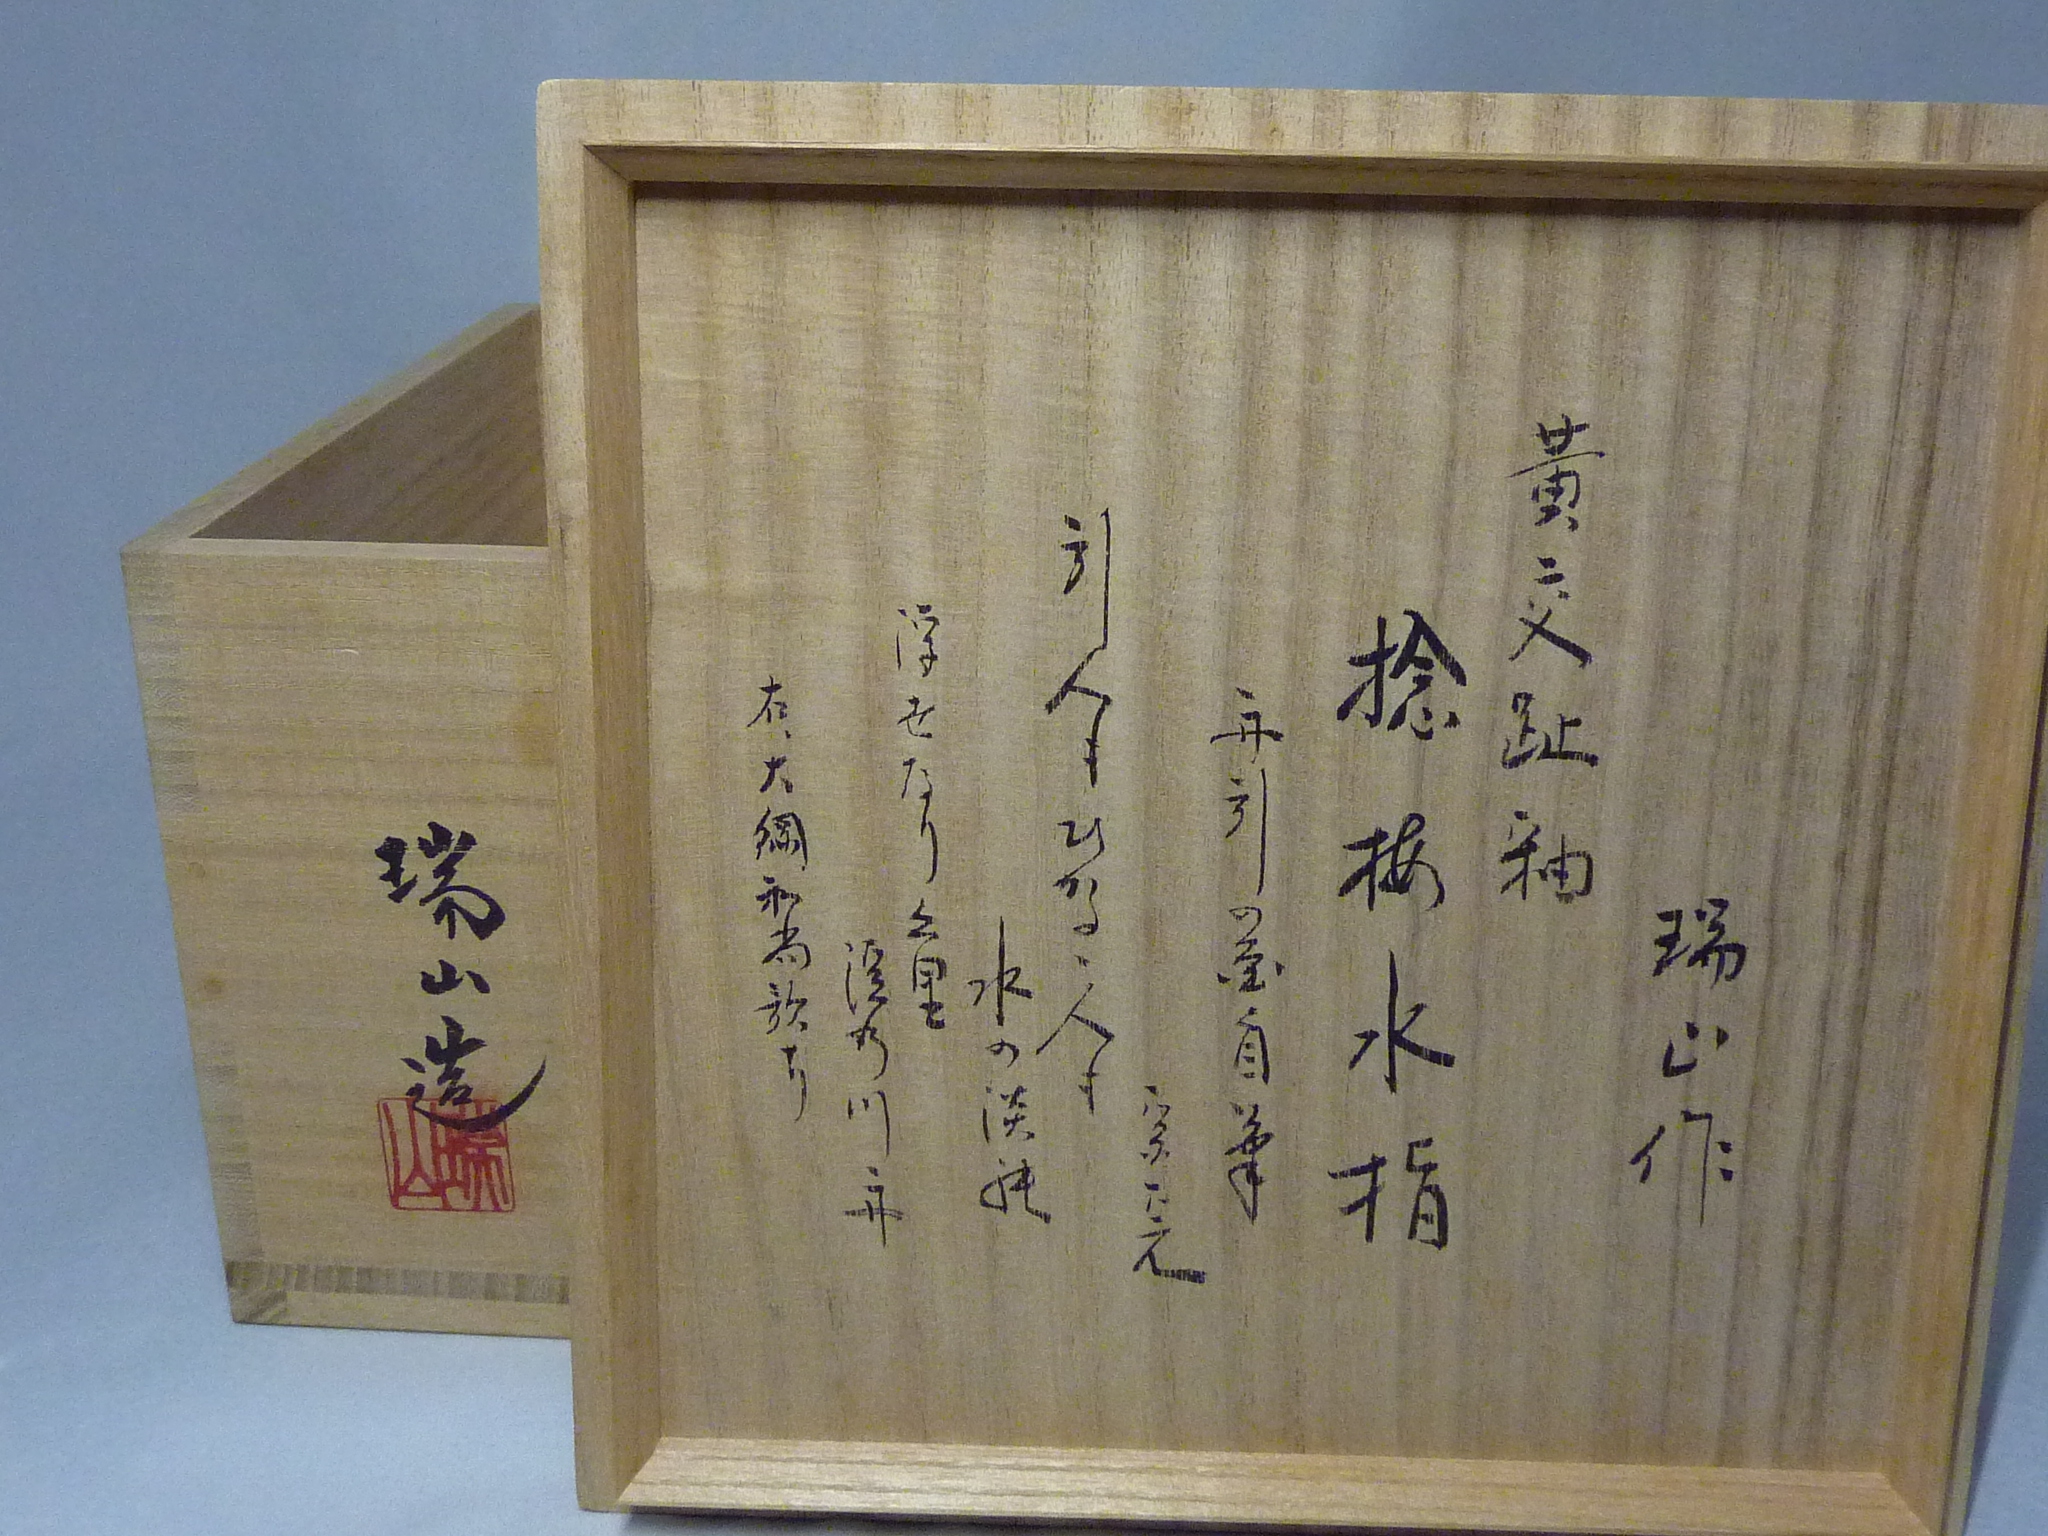 瑞山作
黄交趾釉
捻梅水指
舟引の画自筆
宗元
引人もひかるゝ人も
水の淡能
浮世なり个里
淀乃川舟
右、大綱和尚歌あり
瑞山造
瑞山